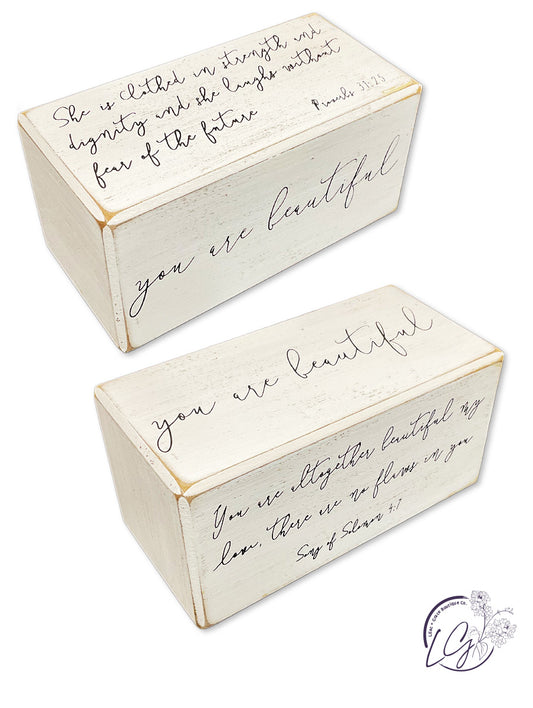 She is clothed in strength and
dignity and she laughs without
fear of the future
Proverbs 31:25
you are beautiful
you are beautiful
You are altogether beautiful my
love, there are no flaws in you
Song of Solomon 4:7
LG